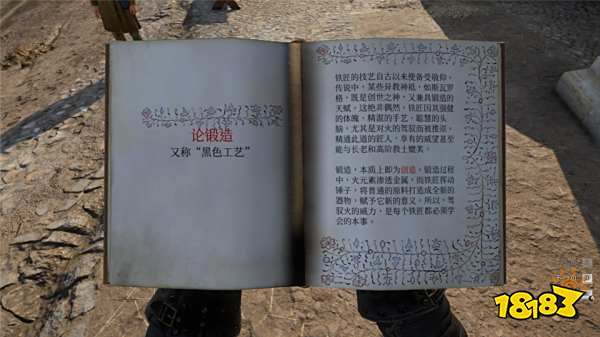 论锻造
又称“黑色工艺”
铁匠的技艺自古以来便备受敬仰。
传说中，某些异教神祗，如斯瓦罗
格，既是创世之神，又兼具锻造的
天赋。这绝非偶然，铁匠因其强健
的体魄、精湛的手艺、聪慧的头
脑，尤其是对火的驾驭而被推崇。
精通此道的匠人，享有的威望甚至
能与长老和高阶教士媲美。
锻造，本质上即为创造。锻造过程
中，火元素渗透金属，而铁匠挥动
锤子，将普通的原料打造成全新的
器物，赋予它新的意义。所以，驾
驭火的威力，是每个铁匠都必须学
会的本事。
18183